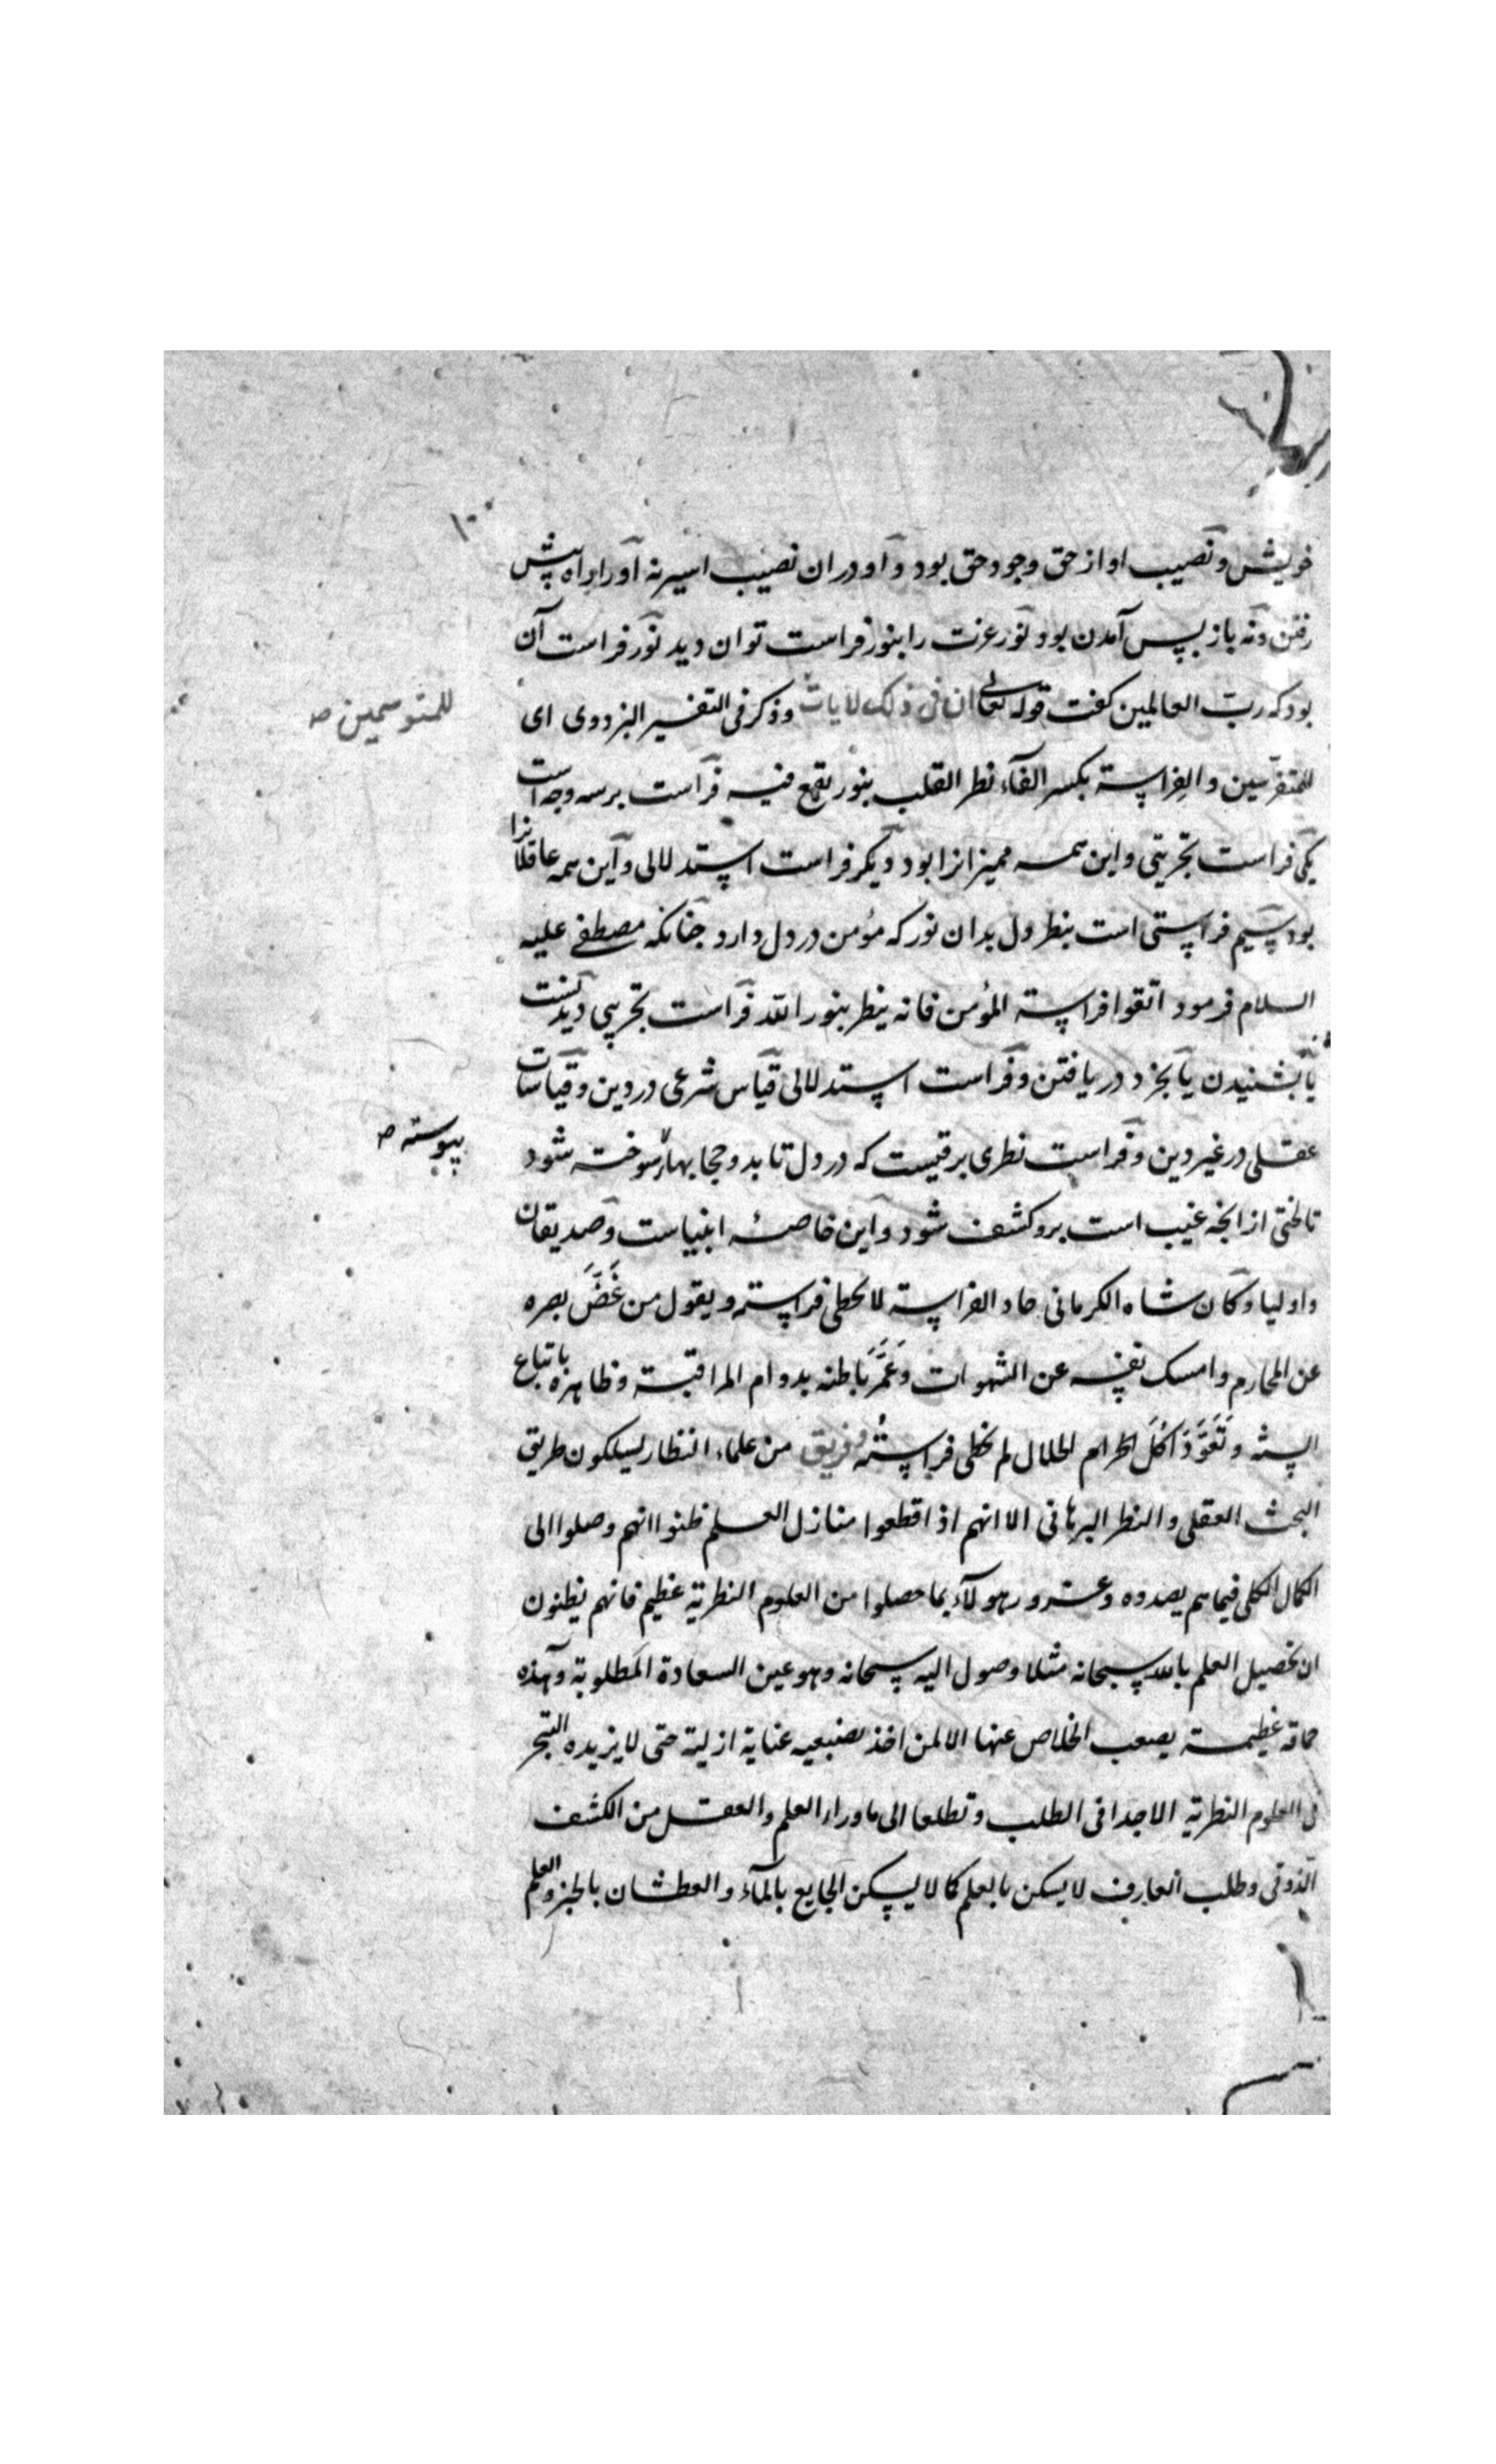 خویش و نصیب او از حق وجود حق بود و او در ان نصیب اسیر نه او را راه پیش
رفتن و نه باز پس آمدن بود نور عزت را بنور فراست توان دید نور فراست آن
بود که رب العالمین کفت قوله تعالی ان فی ذلک لایات وذکر فی التفسیر البزدوی ای
للمتوسمین صح
للمتفرسین والفِراسة بکسر الفآء نظر القلب بنور یقع فیه فراست برسه وجه است
یکی فراست تجربتی و این همه ممیزانرا بود دیکر فراست استدلالی و این همه عاقلانرا
بود سیم فراستی است بنظر دل بدان نور که مؤمن در دل دارد جنانکه مصطفی علیه
السلام فرمود اتقوا فراسة المؤمن فانه ینظر بنور الله فراست تجربتی دیدنست
یا بشنیدن یا بخرد دریافتن و فراست استدلالی قیاس شرعی در دین و قیاسات
عقلی در غیر دین و فراست نظری برقیست که در دل تابد و حجابها سوخته شود
پیوسته صح
تا لختی از انچه غیب است برو کشف شود و این خاصهٔ انبیاست و صدیقان
و اولیا و کان شاه الکرمانی حاد الفراسة لا یخطی فراسته و یقول من غَضَّ بصره
عن المحارم و امسک نفسه عن الشهوات و عَمَّرَ باطنه بدوام المراقبة و ظاهره باتباع
السنة و تَعَوَّدَ اکلَ الحلال لم یخطی فراستُه فریق من علماء النظار یسلکون طریق
البحث العقلی و النظر البرهانی الا انهم اذا قطعوا منازل العلم ظنوا انهم وصلوا الی
الکمال الکلی فیما هم بصدده و غرور هولآء بما حصلوا من العلوم النظریة عظیم فانهم یظنون
ان تحصیل العلم بالله سبحانه مثلا وصول الیه سبحانه وهو عین السعادة المطلوبة وهذه
حماقة عظیمة یصعب الخلاص عنها الا لمن اخذ بضبعیه عنایة ازلیة حتی لا یزیده التبحر
فی العلوم النظریة الا جدا فی الطلب و تطلعا الی ما وراء العلم و العقل من الکشف
الذوقی و طلب العارف لا یسکن بالعلم کما لا یسکن الجایع بالمآء و العطشان بالخبز و العلم